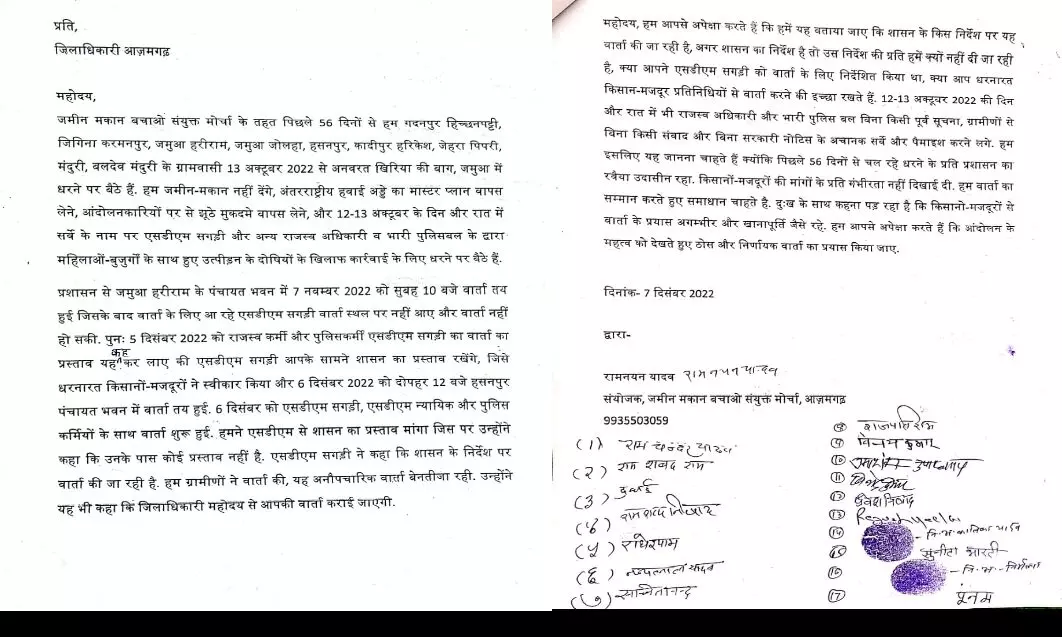 प्रति,
जिलाधिकारी आज़मगढ़
महोदय,
जमीन मकान बचाओ संयुक्त मोर्चा के तहत पिछले 56 दिनों से हम गदनपुर हिच्छनपट्टी,
जिगिना करमनपुर, जमुआ हरीराम, जमुआ जोलहा, हसनपुर, कादीपुर हरिकेश, जेहरा पिपरी,
मंदुरी, बलदेव मंदुरी के ग्रामवासी 13 अक्टूबर 2022 से अनवरत खिरिया की बाग, जमुआ में
धरने पर बैठे हैं. हम जमीन-मकान नहीं देंगे, अंतरराष्ट्रीय हवाई अड्डे का मास्टर प्लान वापस
लेने, आंदोलनकारियों पर से झूठे मुकदमे वापस लेने, और 12-13 अक्टूबर के दिन और रात में
सर्वे के नाम पर एसडीएम सगड़ी और अन्य राजस्व अधिकारी व भारी पुलिसबल के द्वारा
महिलाओं-बुजुर्गों के साथ हुए उत्पीड़न के दोषियों के खिलाफ कार्रवाई के लिए धरने पर बैठे हैं.
प्रशासन से जमुआ हरीराम के पंचायत भवन में 7 नवम्बर 2022 को सुबह 10 बजे वार्ता तय
हुई जिसके बाद वार्ता के लिए आ रहे एसडीएम सगड़ी वार्ता स्थल पर नहीं आए और वार्ता नहीं
हो सकी. पुनः 5 दिसंबर 2022 को राजस्व कर्मी और पुलिसकर्मी एसडीएम सगड़ी का वार्ता का
प्रस्ताव यह कह कर लाए की एसडीएम सगड़ी आपके सामने शासन का प्रस्ताव रखेंगे, जिसे
धरनारत किसानों-मजदूरों ने स्वीकार किया और 6 दिसंबर 2022 को दोपहर 12 बजे हसनपुर
पंचायत भवन में वार्ता तय हुई. 6 दिसंबर को एसडीएम सगड़ी, एसडीएम न्यायिक और पुलिस
कर्मियों के साथ वार्ता शुरू हुई. हमने एसडीएम से शासन का प्रस्ताव मांगा जिस पर उन्होंने
कहा कि उनके पास कोई प्रस्ताव नहीं है. एसडीएम सगड़ी ने कहा कि शासन के निर्देश पर
वार्ता की जा रही है. हम ग्रामीणों ने वार्ता की, यह अनौपचारिक वार्ता बेनतीजा रही. उन्होंने
यह भी कहा कि जिलाधिकारी महोदय से आपकी वार्ता कराई जाएगी.
महोदय, हम आपसे अपेक्षा करते हैं कि हमें यह बताया जाए कि शासन के किस निर्देश पर यह
वार्ता की जा रही है, अगर शासन का निर्देश है तो उस निर्देश की प्रति हमें क्यों नहीं दी जा रही
है, क्या आपने एसडीएम सगड़ी को वार्ता के लिए निर्देशित किया था, क्या आप धरनारत
किसान-मजदूर प्रतिनिधियों से वार्ता करने की इच्छा रखते हैं. 12-13 अक्टूबर 2022 की दिन
और रात में भी राजस्व अधिकारी और भारी पुलिस बल बिना किसी पूर्व सूचना, ग्रामीणों से
बिना किसी संवाद और बिना सरकारी नोटिस के अचानक सर्वे और पैमाइश करने लगे. हम
इसलिए यह जानना चाहते हैं क्योंकि पिछले 56 दिनों से चल रहे धरने के प्रति प्रशासन का
रवैया उदासीन रहा. किसानों-मजदूरों की मांगों के प्रति गंभीरता नहीं दिखाई दी. हम वार्ता का
सम्मान करते हुए समाधान चाहते है. दुःख के साथ कहना पड़ रहा है कि किसानो-मजदूरों से
वार्ता के प्रयास अगम्भीर और खानापूर्ति जैसे रहे. हम आपसे अपेक्षा करते हैं कि आंदोलन के
महत्व को देखते हुए ठोस और निर्णायक वार्ता का प्रयास किया जाए.
दिनांक- 7 दिसंबर 2022
द्वारा-
रामनयन यादव रामनयन यादव
संयोजक, जमीन मकान बचाओ संयुक्त मोर्चा, आज़मगढ़
9935503059
(1) राम चन्दर यादव
(२) राम शब्द राम
(3) दुलाई
(४) रामशब्द निषाद
(५) राधेश्याम
(६) यादव
(७)
⑧ राजपति राम
⑨ विनय कुमार
⑩ उपाध्याय
⑪
⑫ निषाद
⑬
⑭ - नि.अ. कालिका यादव
⑮ सुनीता भारती
⑯ - नि.अ. - निर्मला
⑰ पूनम